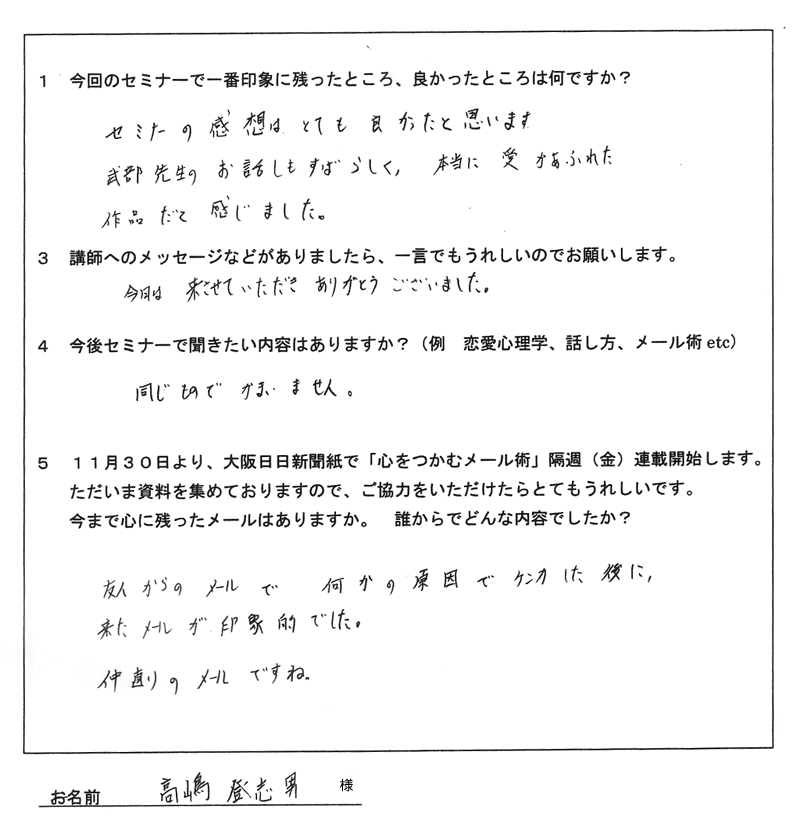 1 今回のセミナーで一番印象に残ったところ、良かったところは何ですか？
セミナーの感想はとても良かったと思います
武部先生のお話しもすばらしく、本当に愛があふれた
作品だと感じました。
3 講師へのメッセージなどがありましたら、一言でもうれしいのでお願いします。
今日は来させていただきありがとうございました。
4 今後セミナーで聞きたい内容はありますか？（例　恋愛心理学、話し方、メール術 etc）
同じものでかまいません。
5 １１月３０日より、大阪日日新聞紙で「心をつかむメール術」隔週（金）連載開始します。
ただいま資料を集めておりますので、ご協力をいただけたらとてもうれしいです。
今まで心に残ったメールはありますか。　誰からでどんな内容でしたか？
友人からのメールで何かの原因でケンカした後に、
来たメールが印象的でした。
仲直りのメールですね。
お名前 高嶋 登志男 様